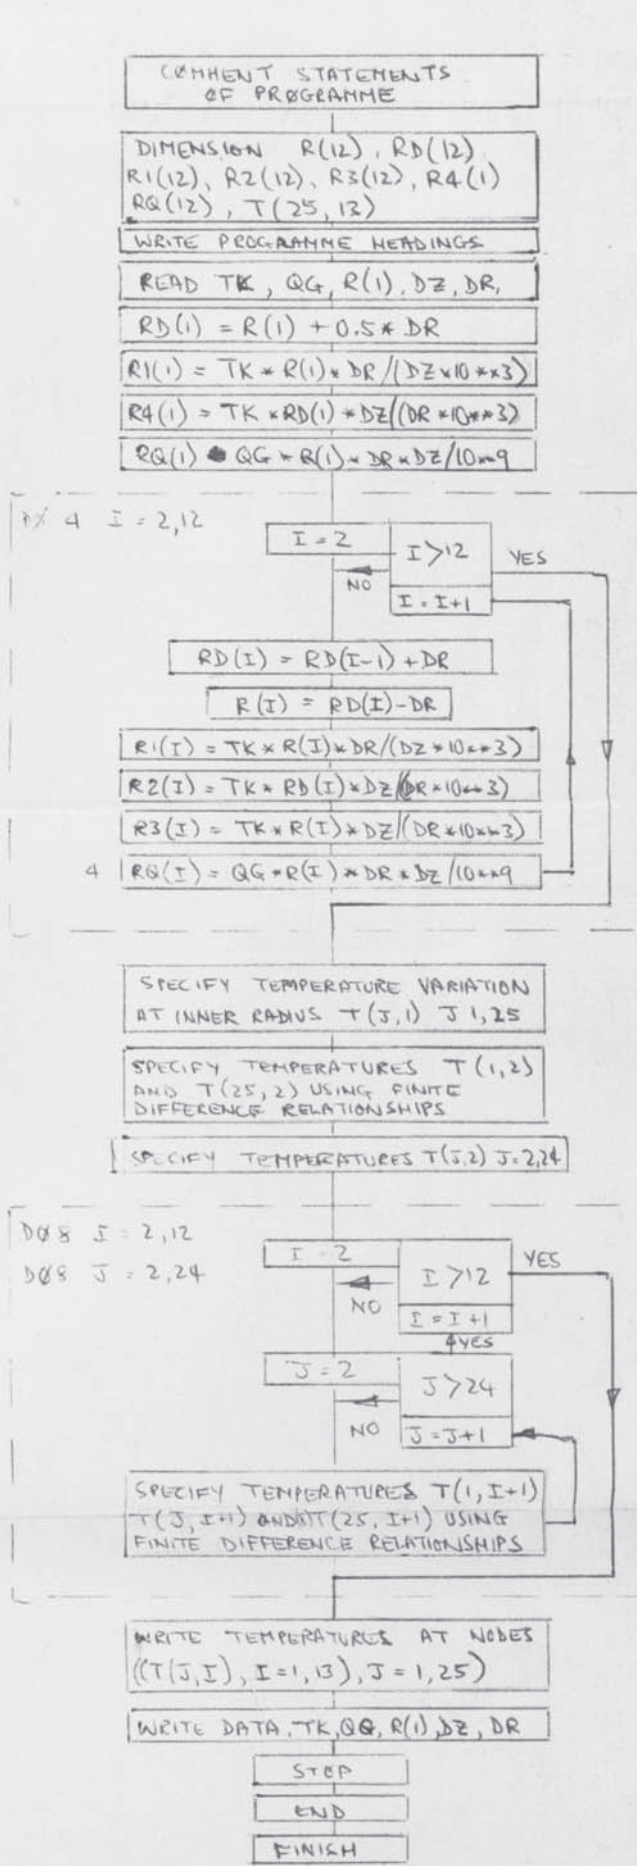 CØMMENT STATEMENTS
ØF PRØGRAMME
DIMENSION R(12), RD(12)
R1(12), R2(12), R3(12), R4(1)
RQ(12), T(25,13)
WRITE PROGRAMME HEADINGS
READ TK, QG, R(1), DZ, DR,
RD(1) = R(1) + 0.5* DR
R1(1) = TK * R(1)* DR/(DZ*10**3)
R4(1) = TK *RD(1) *DZ/(DR *10**3)
RQ(1) QG * R(1)* DR*DZ/10**9
DØ 4 I = 2,12
I = 2
I>12
YES
NO
I = I+1
RD(I) = RD(I-1) + DR
R(I) = RD(I)-DR
R1(I) = TK * R(I)*DR/(DZ*10**3)
R2(I) = TK* RD(I)*DZ/(DR*10**3)
R3(I) = TK*R(I)*DZ/(DR*10**3)
4 RQ(I) = QG*R(I)*DR*DZ/10**9
SPECIFY TEMPERATURE VARIATION
AT INNER RADIUS T(J,1) J 1,25
SPECIFY TEMPERATURES T(1,2)
AND T(25,2) USING FINITE
DIFFERENCE RELATIONSHIPS
SPECIFY TEMPERATURES T(J,2) J=2,24
DØ8 I = 2,12
DØ8 J = 2,24
I = 2
I>12
YES
NO
I = I+1
YES
J = 2
J>24
NO
J=J+1
SPECIFY TEMPERATURES T(1,I+1)
T(J,I+1) AND T(25,I+1) USING
FINITE DIFFERENCE RELATIONSHIPS
WRITE TEMPERATURES AT NODES
((T(J,I), I=1,13), J=1,25)
WRITE DATA, TK, QG, R(1), DZ, DR
STOP
END
FINISH